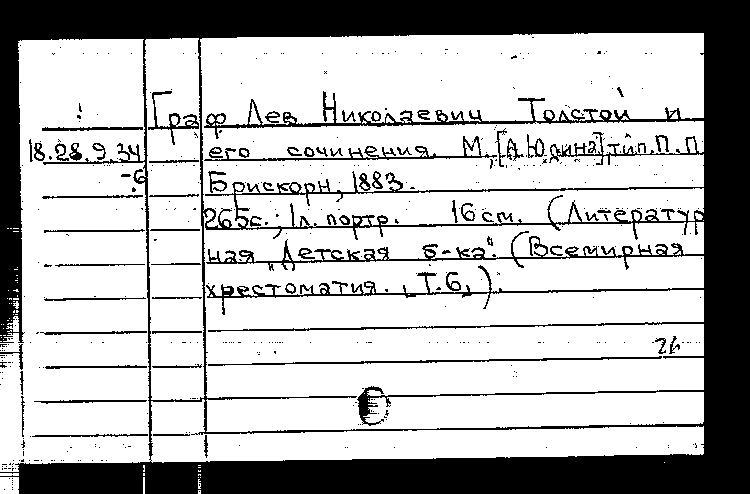 Граф Лев Николаевич Толстой и
18.28.9.34 его сочинения. М., [А. Юдина], тип. П.П.
-6 Брискорн, 1883.
265с.; 1л. портр. 16 см. (Литератур
ная „Детская б-ка". (Всемирная
хрестоматия. Т.6,).